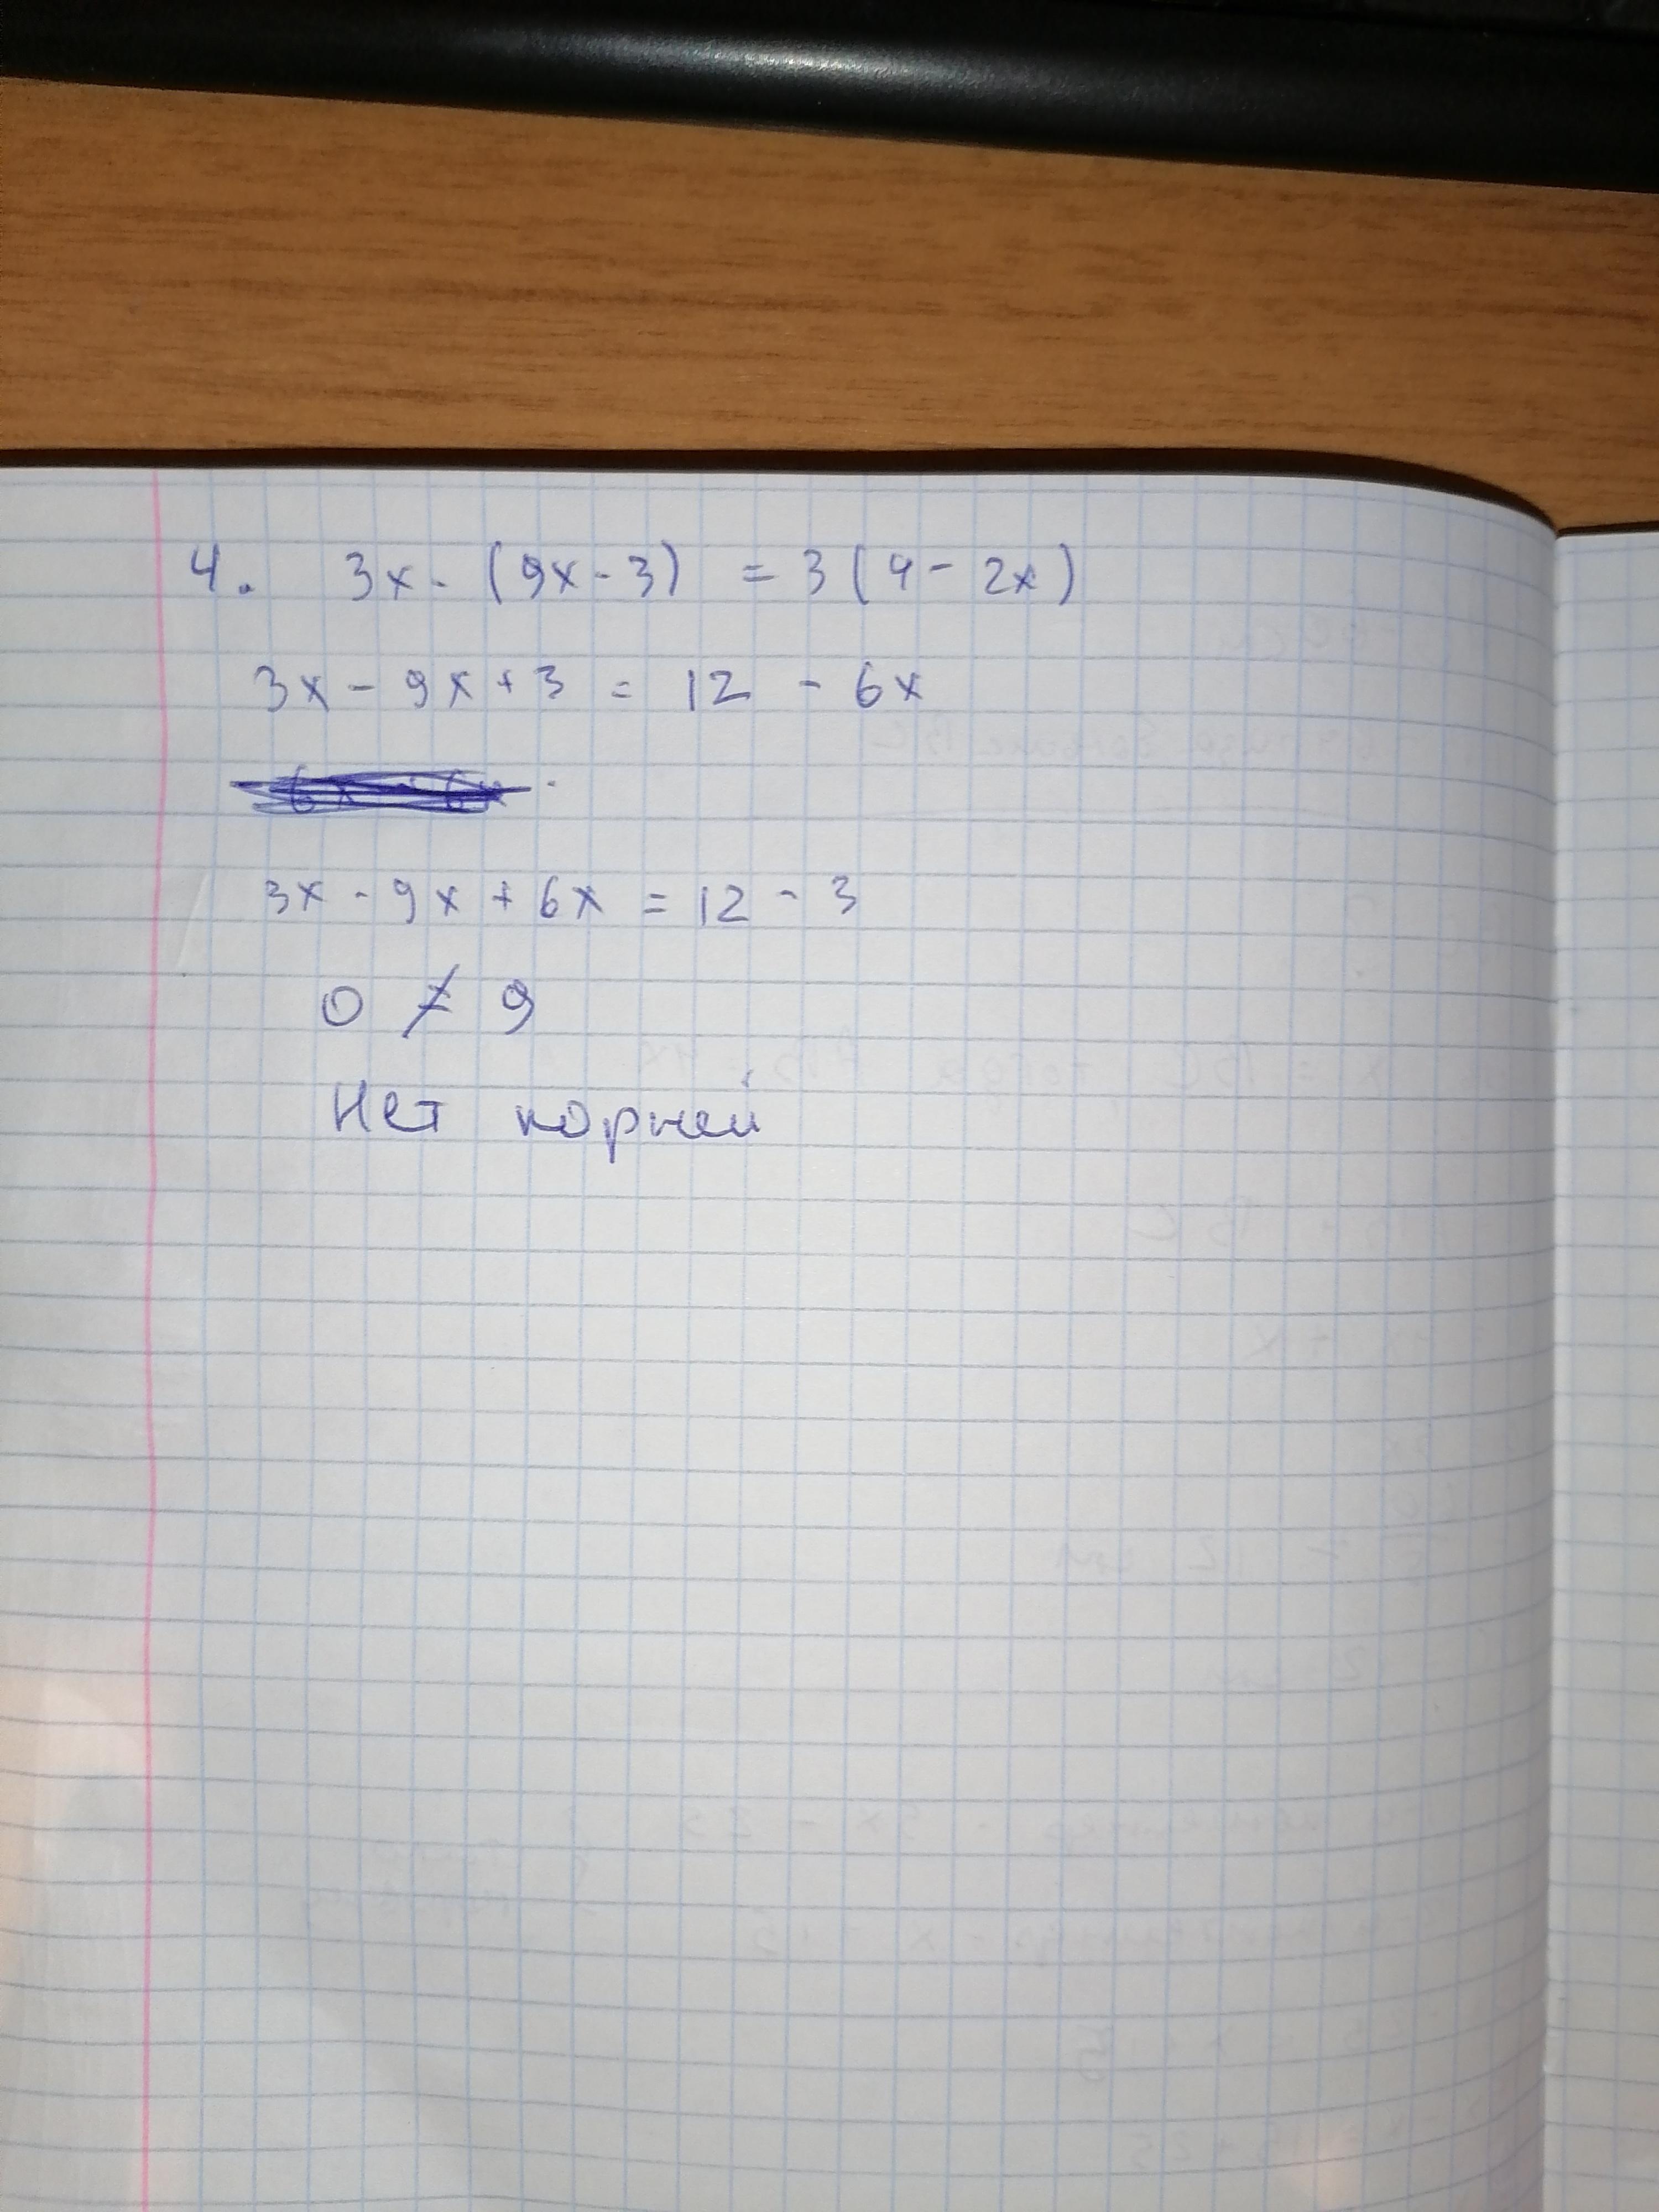 4. 3x - (9x - 3) = 3(4 - 2x)
3x - 9x + 3 = 12 - 6x
3x - 9x + 6x = 12 - 3
0 ≠ 9
Нет корней